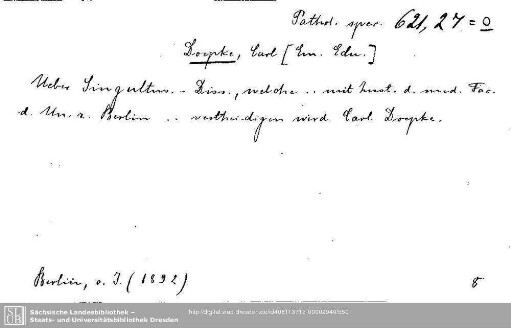 Pathol. spec. 621, 27 = o
Doepke, Carl [Em. Edu.]
Ueber Singultus. - Diss., welche .. mit Zust. d. med. Fac.
d. Un. z. Berlin .. vertheidigen wird Carl Doepke.
Berlin, o. J. (1892)
8
Sächsische Landesbibliothek –
Staats- und Universitätsbibliothek Dresden